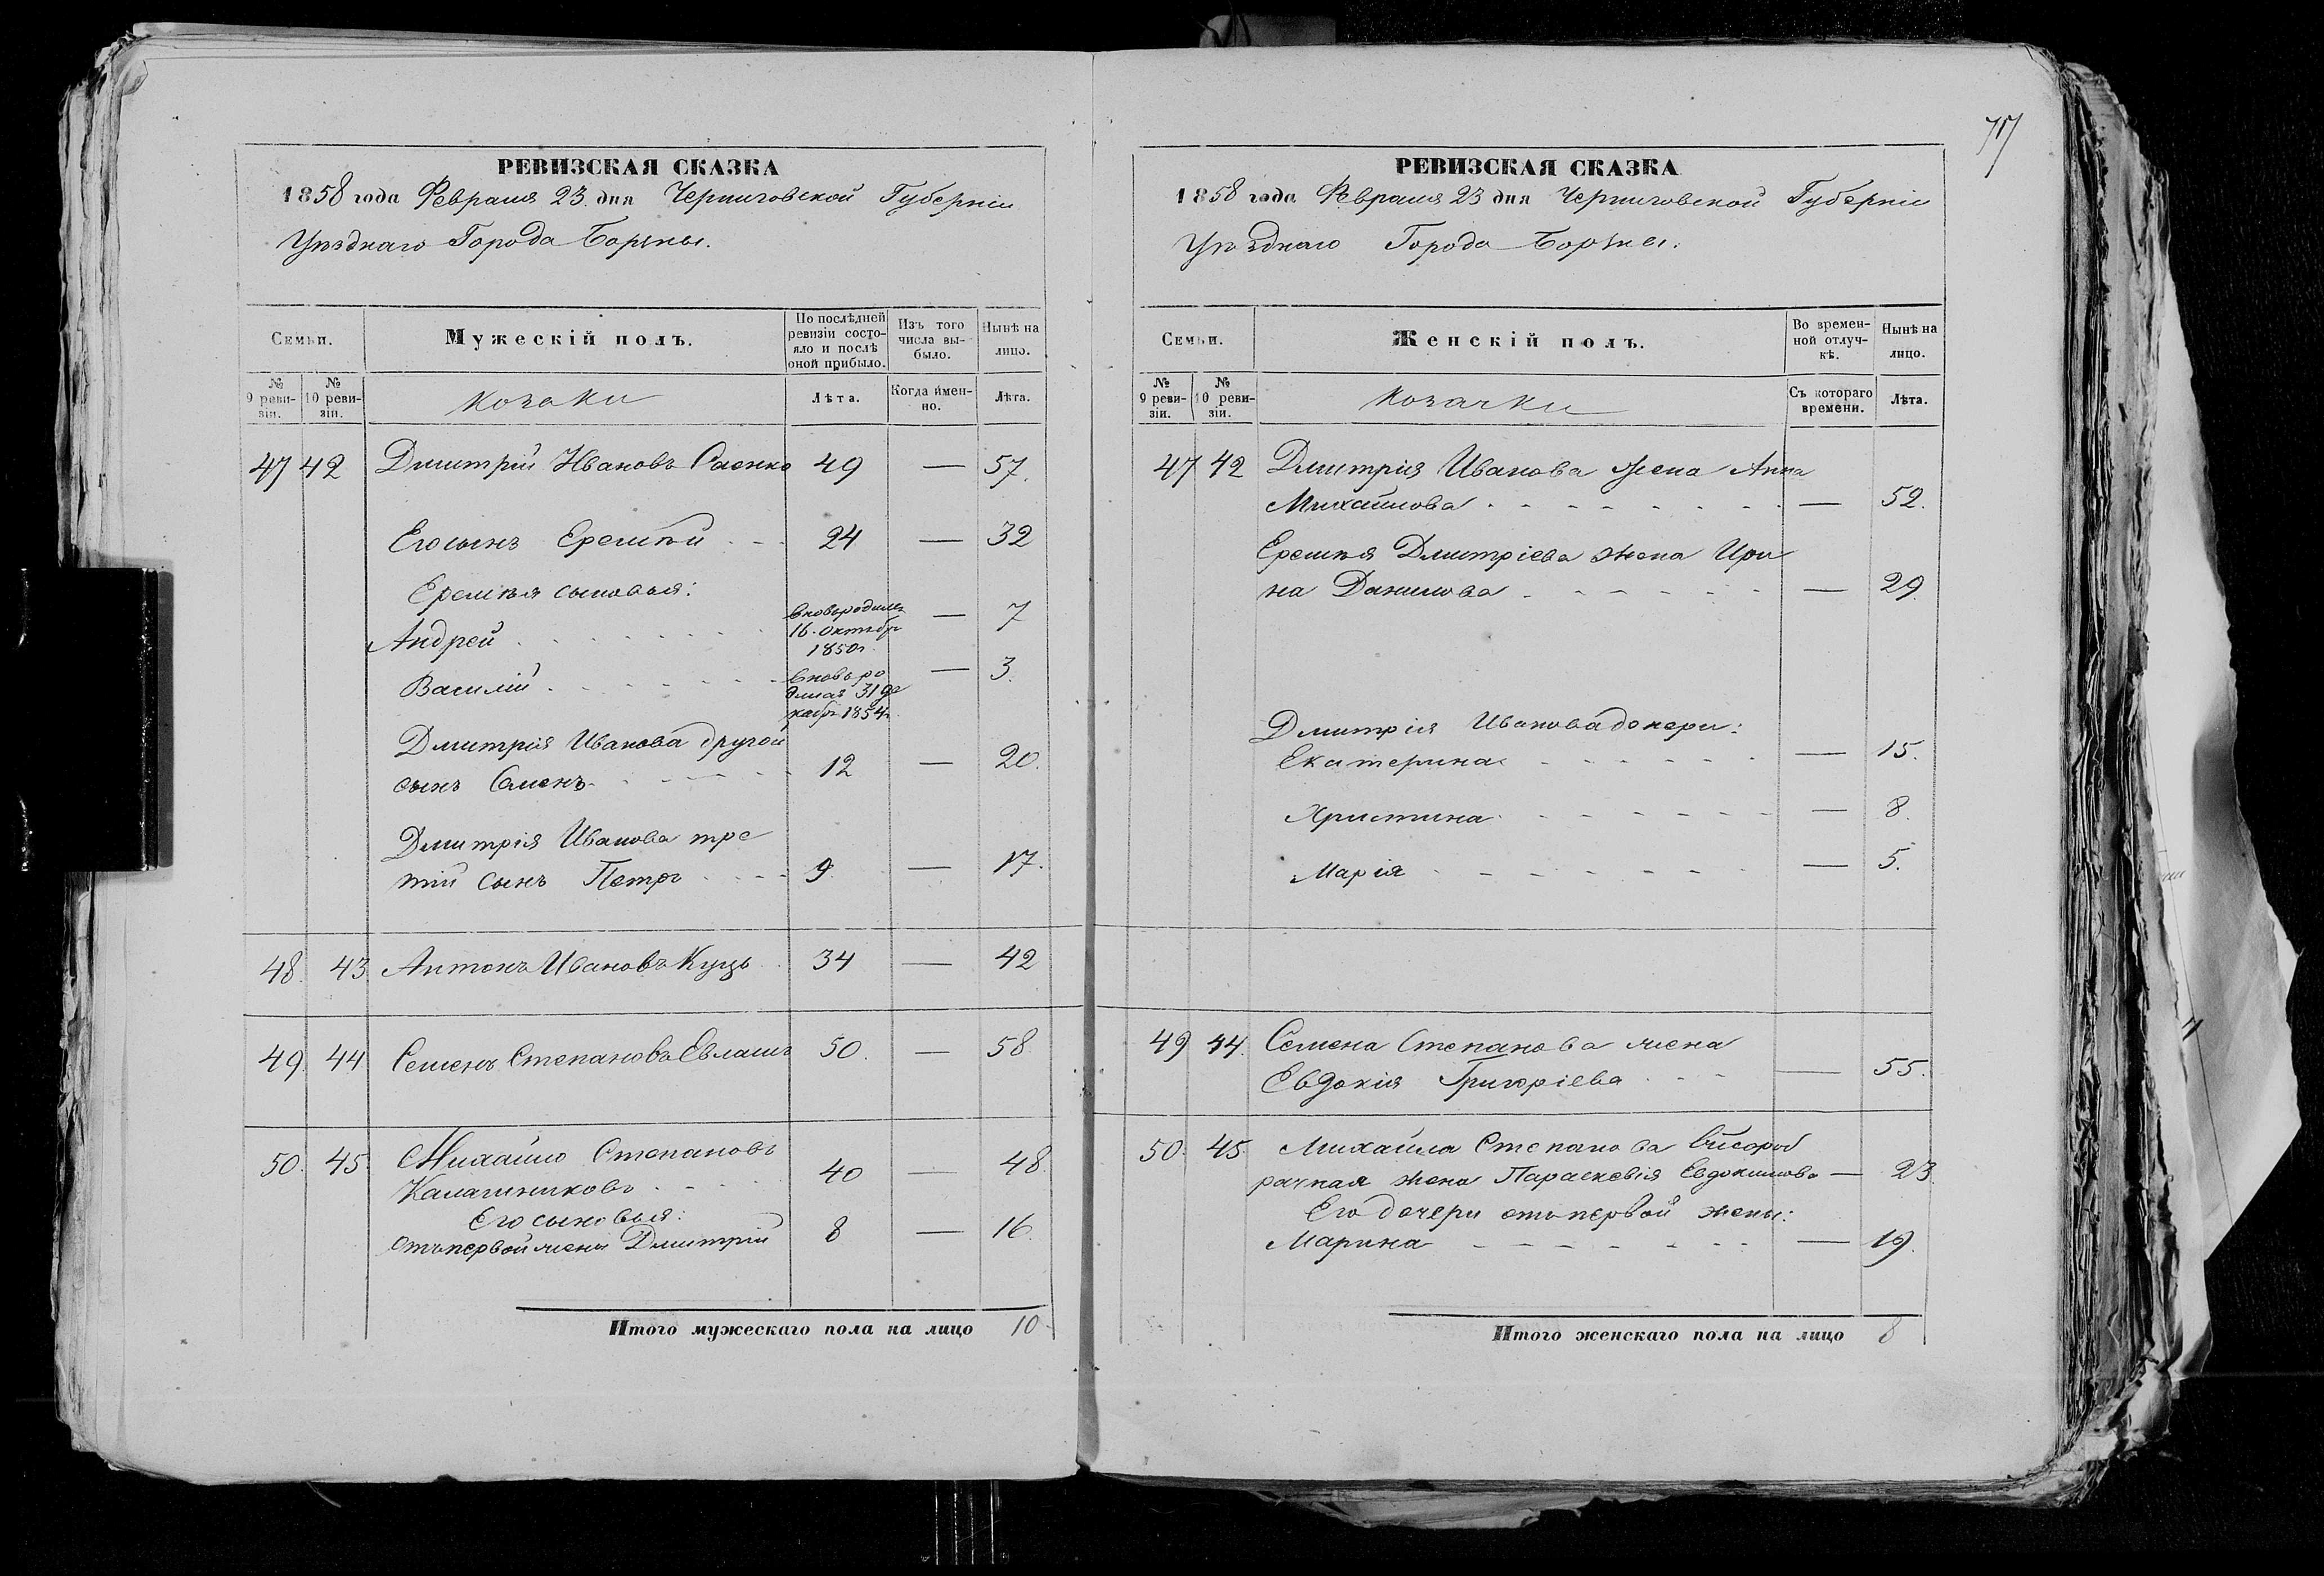 717
РЕВИЗСКАЯ СКАЗКА
1858 года Февраля 23 дня Черниговской Губерніи
Уѣзднаго Города Борзны.
Семьи.
Мужескій полъ.
По послѣдней
ревизіи состо-
яло и послѣ
оной прибыло.
Изъ того
числа вы-
было.
Нынѣ на
лицо.
№
9 реви-
зіи.
№
10 реви-
зіи.
козаки
Лѣта.
Когда имен-
но.
Лѣта.
47 42 Дмитрій Ивановъ Саенко 49 — 57.
Его сынъ Еремѣй - - 24 — 32
Еремѣя сыновья:
Андрей . . . . . . . вновь родился 16. октября 1850 г. — 7
Василій . . . . . . вновь родился 31 декабря 1854 г. — 3.
Дмитрія Иванова другой
сынъ Семенъ - - - - 12 — 20.
Дмитрія Иванова тре
тій сынъ Петръ - - - - 9 — 17.
48. 43. Антонъ Ивановъ Куць 34 — 42
49. 44 Семенъ Степановъ 50. — 58
50. 45. Михайло Степановъ
Калашниковъ - - - 40 — 48.
Его сыновья:
отъ первой жены Дмитрій 8 — 16.
Итого мужескаго пола на лицо 10
РЕВИЗСКАЯ СКАЗКА
1858 года Февраля 23 дня Черниговской Губерніи
Уѣзднаго Города Борзны.
Семьи.
Женскій полъ.
Во времен-
ной отлуч-
кѣ.
Нынѣ на
лицо.
№
9 реви-
зіи.
№
10 реви-
зіи.
козачки
Съ котораго
времени.
Лѣта.
47 42 Дмитрія Иванова жена Анна
Михайлова - - - - - - - — 52.
Еремѣя Дмитріева жена Ири
на Данилова - - - - - - — 29.
Дмитрія Иванова дочери:
Екатерина - - - - - - — 15.
Христина - - - - - - — 8.
Марія - - - - - - - — 5.
49 44. Семена Степанова жена
Евдокія Григоріева - - - — 55.
50. 45. Михайла Степанова
рачная жена Параскевія Евдокимова — 23.
Его дочери отъ первой жены:
Марина - - - - - - - — 19.
Итого женскаго пола на лицо 8